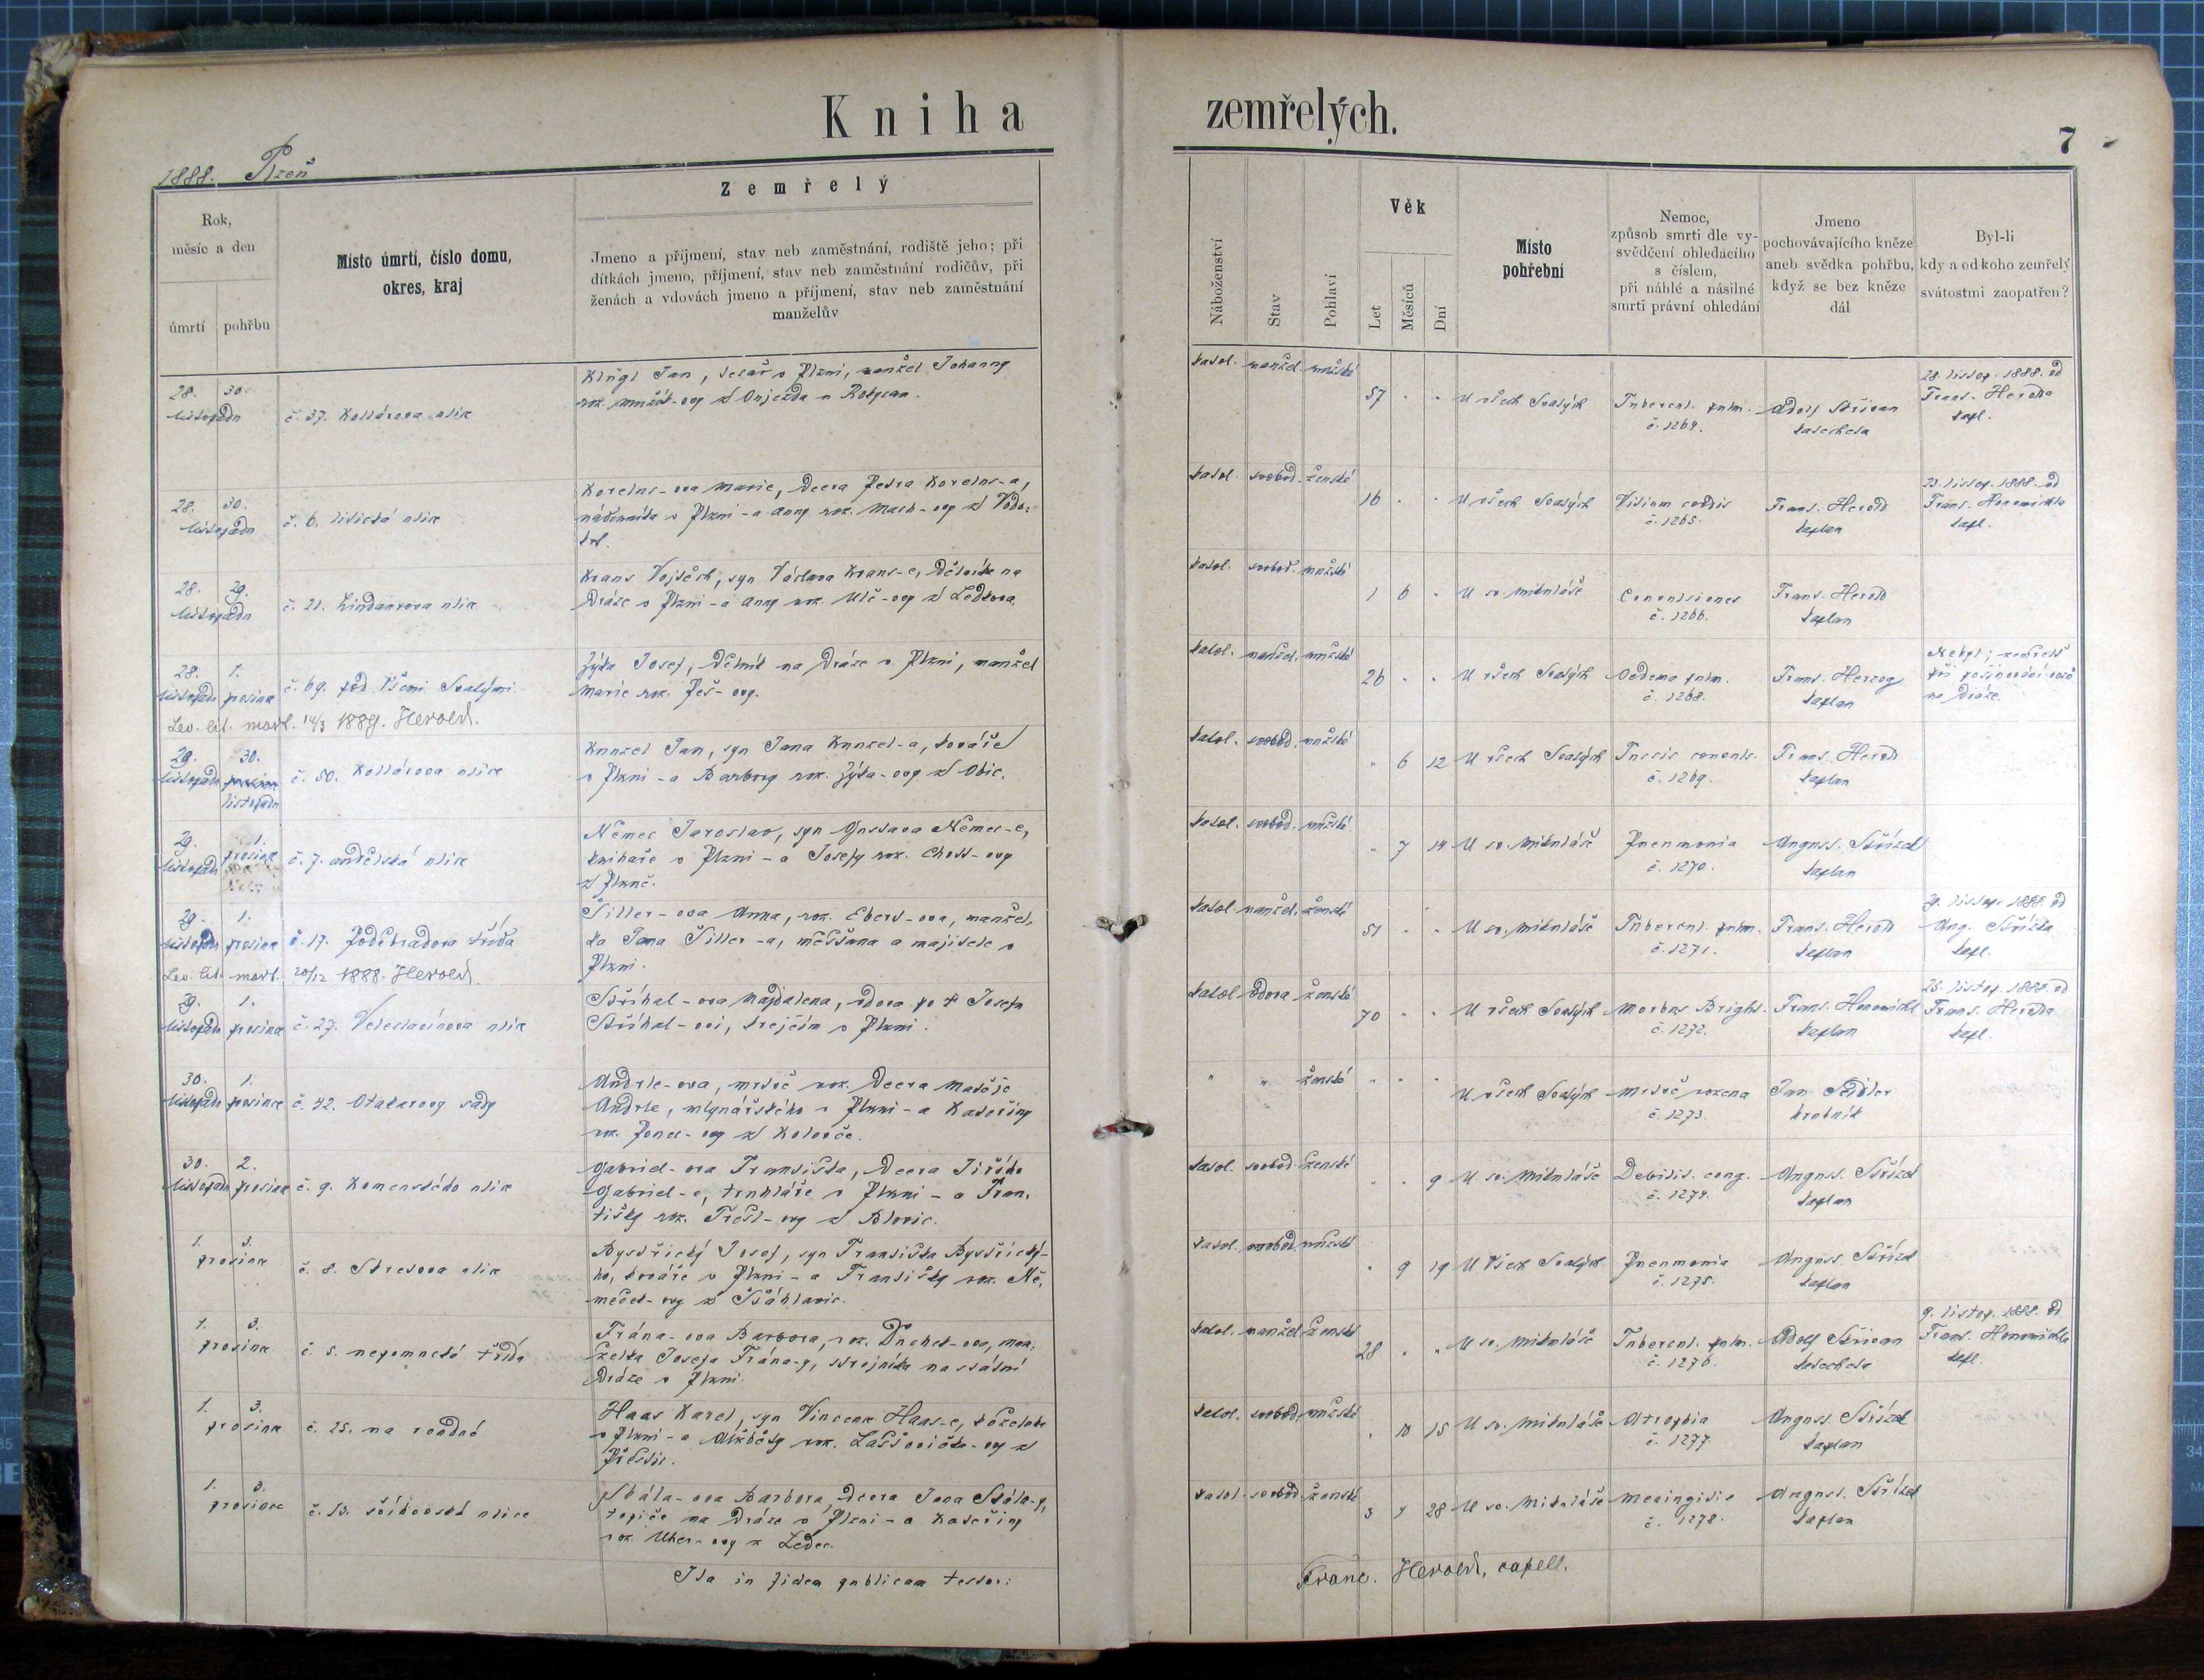 Kniha zemřelých.
7
1888. Plzeň
Rok, měsíc a den
úmrtí
pohřbu
Místo úmrtí, číslo domu, okres, kraj
Zemřelý
Jmeno a příjmení, stav neb zaměstnání, rodiště jeho; při
dítkách jmeno, příjmení, stav neb zaměstnání rodičův, při
ženách a vdovách jmeno a příjmení, stav neb zaměstnání
manželův
Náboženství
Stav
Pohlaví
Věk
Let
Měsíců
Dní
Místo
pohřební
Nemoc,
způsob smrti dle vy-
svědčení ohledacího
s číslem,
při náhlé a násilné
smrti právní ohledání
Jmeno
pochovávajícího kněze
aneb svědka pohřbu,
když se bez kněze
dál
Byl-li
kdy a od koho zemřelý
svátostmi zaopatřen?
28. 30.
listopadu
č. 37. Kollárova ulice
Jan, tesař v Plzni, manžel Johanny
katol. manžel. mužské
57
U všech Svatých
Tubercul. pulm.
č. 1264.
Adolf
katecheta
28. listop. 1888. od
Frant. Herolda
kapl.
28. 30.
listopadu
č. 6. ulice
Marie, dcera Petra
v Plzni - a Anny roz.
katol. svobod. ženské
16
U všech Svatých
Vitium cordis
č. 1265.
Frant. Herold
kaplan
23. listop. 1888. od
Frant.
kapl.
28. 29.
listopadu
č. 21. Lindaurova ulice
Kraus Vojtěch, syn Václava Kraus-e, dělníka na
dráze v Plzni - a Anny roz. z Ledkova.
katol. svobod. mužské
1 6
U sv. Mikuláše
Convulsiones
č. 1266.
Frant. Herold
kaplan
28. 1.
listopadu prosince
č. 69. pod Všemi Svatými
Zýka Josef, dělník na dráze v Plzni, manžel
Marie roz. Peš-ovy.
katol. manžel. mužské
26
U všech Svatých
Oedema pulm.
č. 1268.
Frant. Herzog
kaplan
Nebyl; zemřel
při posunování vozů
na dráze.
Lev. lit. mort. 14/3 1889. Herold.
29. 30.
listopadu
listopadu
č. 50. Kollárova ulice
Kunzel Jan, syn Jana Kunzel-a, kováře
v Plzni - a Barbory roz. Zýka-ovy z
katol. svobod. mužské
" 6 12
U všech Svatých
Tussis convuls.
č. 1269.
Frant. Herold
kaplan
29. 1.
listopadu prosince
č. 7. andělská ulice
Němec Jaroslav, syn Gustava Němec-e,
knihaře v Plzni - a Josefy roz.
katol. svobod. mužské
" 7 14
U sv. Mikuláše
Pneumonia
č. 1270.
August. Střízek
kaplan
29. 1.
listopadu prosince
č. 17. Poděbradova třída
Šiller-ova Anna, roz. manžel.
ka Jana Šiller-a, měšťana a majitele v
Plzni.
katol. manžel. ženské
51
U sv. Mikuláše
Tubercul. pulm.
č. 1271.
Frant. Herold
kaplan
listop. 1888. od
Aug. Střízka
kapl.
Lev. lit. mort. 20/12 1888. Herold.
29. 1.
listopadu prosince
č. 27. Veleslavínova ulice
Stříhal-ova Majdalena, vdova po † Josefu
Stříhal-ovi, krejčím v Plzni.
katol. vdova ženské
70
U všech Svatých
Morbus Bright.
č. 1272.
Frant.
kaplan
listop. 1888. od
Frant. Herolda
kapl.
30. 1.
listopadu prosince
č. 42. Otakarovy sady
Andrle-ova, mrtvě roz. dcera Matěje
Andrle, mlynářského v Plzni - a Kateřiny
roz. z Koloveče.
" " ženské
U všech Svatých
Mrtvě rozena
č. 1273.
Jan Seidler
hrobník
30. 2.
listopadu prosince
č. 9. Komenského ulice
Gabriel-ova Františka, dcera Jiřího
Gabriel-e, truhláře v Plzni - a Fran-
tišky roz. z Blovic.
katol. svobod. ženské
" " 9
U sv. Mikuláše
Debilit. cong.
č. 1274.
August. Střízek
kaplan
1. 3.
prosince
č. 8. ulice
Bystřický Josef, syn Františka Bystřický-
ho, kováře v Plzni - a Františky roz. Ně-
meček-ovy z Šťáhlavic.
katol. svobod. mužské
" 9 19
U Všech Svatých
Pneumonia
č. 1275.
August. Střízek
kaplan
1. 3.
prosince
č. 5. nepomucká třída
Frána-ova Barbora, roz. man-
želka Josefa Frána-y, strojníka na státní
dráze v Plzni.
katol. manžel. ženské
28
U sv. Mikuláše
Tubercul. pulm.
č. 1276.
Adolf
katecheta
9. listop. 1888. od
Frant.
kapl.
1. 3.
prosince
č. 25. na roudné
Haas Karel, syn Vincence Haas-e, koželuha
v Plzni - a Alžběty roz. z
Přeštic.
katol. svobod. mužské
" 10 15
U sv. Mikuláše
Atrophia
č. 1277.
August. Střízek
kaplan
1. 3.
prosince
č. 13. ulice
Skála-ova Barbora, dcera Jana Skála-y,
topiče na dráze v Plzni - a Kateřiny
roz. Uher-ovy z Ledec.
katol. svobod. ženské
3 28
U sv. Mikuláše
Meningitis
č. 1278.
August. Střízek
kaplan
Ita in fidem publicam testor:
Franc. Herold, capell.